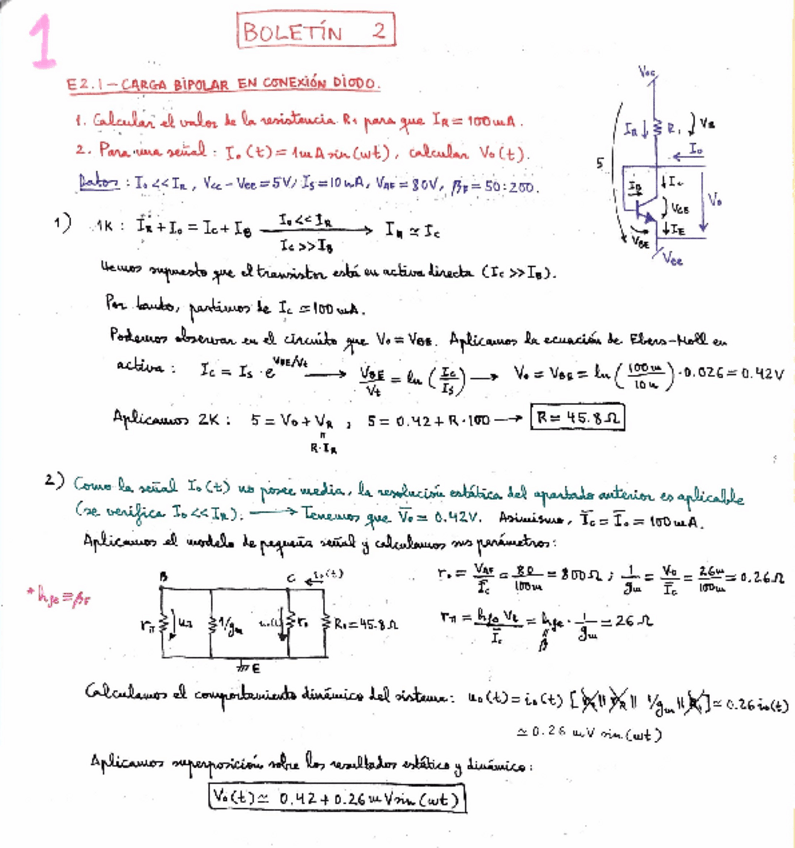 1
BOLETÍN 2
E2.1 – CARGA BIPOLAR EN CONEXIÓN DIODO.
1. Calcular el valor de la resistencia R₁ para que I_R = 100mA.
2. Para una señal: I₀(t) = 1mA sin(ωt), calcular V₀(t).
Datos: I₀ << I_R, Vcc – Vee = 5V, I_S = 10nA, V_AF = 80V, β_F = 50:200.
Vcc
I_R ↓ R₁ V_R
I₀
5
I_B ↓I_C
V_CE V₀
V_BE ↓I_E
Vee
1) 1K: I_R + I₀ = I_C + I_B —(I₀ << I_R / I_C >> I_B)→ I_R ≃ I_C
Hemos supuesto que el transistor está en activa directa (I_C >> I_B).
Por tanto, partimos de I_C ≃ 100mA.
Podemos observar en el circuito que V₀ = V_BE. Aplicamos la ecuación de Ebers-Moll en
activa: I_C = I_S · e^(V_BE/V_t) → V_BE/V_t = ln(I_C/I_S) → V₀ = V_BE = ln(100m/10n) · 0.026 = 0.42V
Aplicamos 2K: 5 = V₀ + V_R ; 5 = 0.42 + R·100 → R = 45.8Ω
R·I_R
2) Como la señal I₀(t) no posee media, la resolución estática del apartado anterior es aplicable
(se verifica I₀ << I_R). → Tenemos que V̄₀ = 0.42V. Asimismo, Ī_C = Ī₀ = 100mA.
Aplicamos el modelo de pequeña señal y calculamos sus parámetros:
r₀ = V_AF/Ī_C = 80/100m = 800Ω ; 1/gm = V₀/Ī_C = 26m/100m = 0.26Ω
B C i₀(t)
* hfe ≡ β_F
rπ 1/gm r₀ R₁=45.8Ω
E
rπ = hfe V_t/Ī_C = hfe · 1/gm = 26Ω
β
Calculamos el comportamiento dinámico del sistema: u₀(t) = i₀(t) [r₀ || rπ || 1/gm || R₁] ≃ 0.26 i₀(t)
≃ 0.26 mV sin(ωt)
Aplicamos superposición sobre los resultados estático y dinámico:
V₀(t) ≃ 0.42 + 0.26mV sin(ωt)